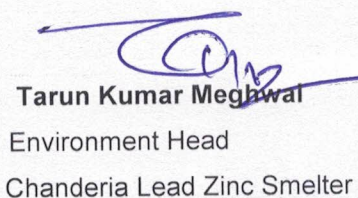 Tarun Kumar Meghwal
Environment Head
Chanderia Lead Zinc Smelter